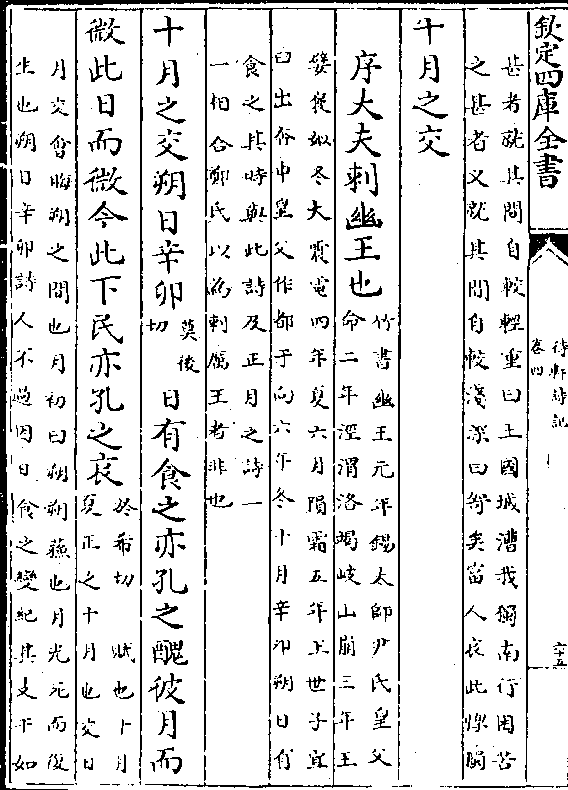 欽定四庫全書
待軒詩記
卷四
甚者就其間自較輕重曰土國城漕我獨南行困苦
之甚者又就其間自較淺深曰哿矣富人哀此惸獨
十月之交
序大夫刺幽王也
竹書幽王元年錫太師尹氏皇父
命二年涇渭洛竭岐山崩三年王
嬖褒姒冬大震電四年夏六月隕霜五年王世子宜
臼出奔申皇父作都于向六年冬十月辛卯朔日有
食之其時與此詩及正月之詩一
一相合鄭氏以爲刺厲王者非也
十月之交朔日辛卯
莫後
切
日有食之亦孔之醜彼月而
微此日而微今此下民亦孔之哀
於希切 賦也十月
夏正之十月也交日
月交會晦朔之間也月初曰朔朔蘇也月光死而復
生也朔日辛卯詩人不過因日食之變紀其支干如